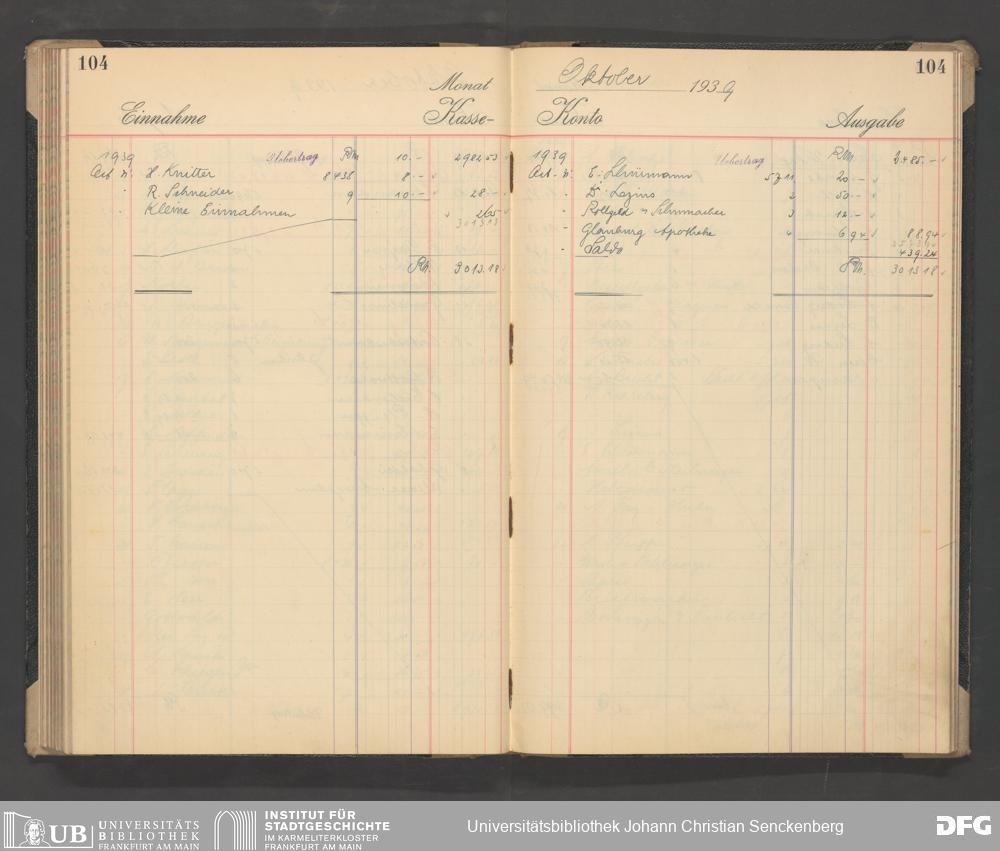 104
Monat
Einnahme Kasse-
1939 Uebertrag RM 10.– 2982.53
Oct. H. Knitter 8438 8.–
" R. Schneider 9 10.– 28.–
" Kleine Einnahmen 2.65
3013.18
RM. 3013.18
104
Oktober 1939
Konto Ausgabe
1939 Uebertrag RM. 2485.–
Oct. E. Schürmann 20.–
" Dr. 2 50.–
" Rollgeld Schumacher 3 12.–
" Glauburg Apotheke 4 6.94 88.94
" Saldo 439.24
RM. 3013.18
UB UNIVERSITÄTS
BIBLIOTHEK
FRANKFURT AM MAIN
INSTITUT FÜR
STADTGESCHICHTE
IM KARMELITERKLOSTER
FRANKFURT AM MAIN
Universitätsbibliothek Johann Christian Senckenberg
DFG